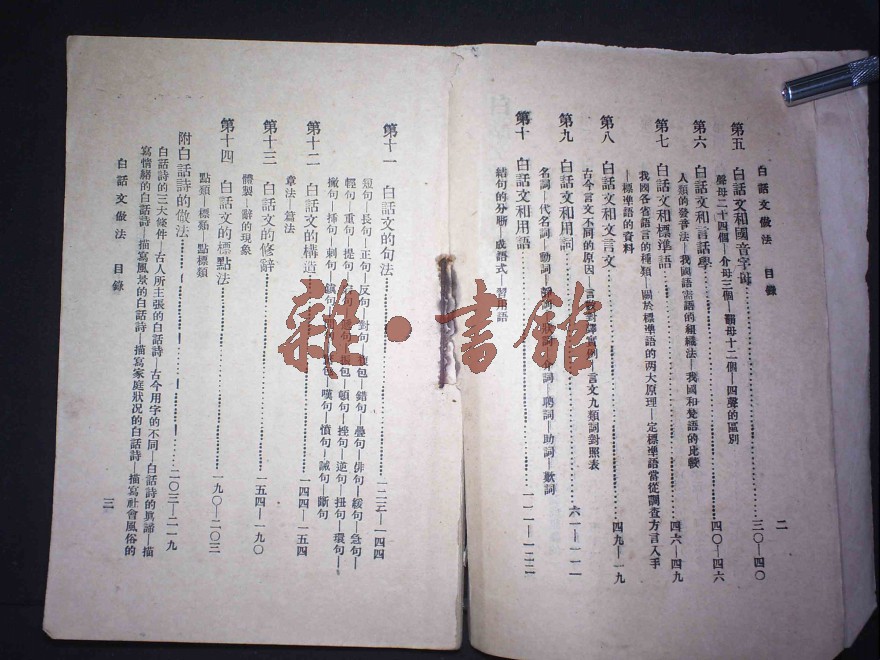 白話文做法 目錄 二
第五 白話文和國音字母 三〇—四〇
聲母二十四個—介母三個—韻母十二個—四聲的區別
第六 白話文和言話學 四〇—四六
人類的發音法—我國語言語的組織法—我國和梵語的比較
第七 白話文和標準語 四六—四九
我國各省語言的種類—關於標準語的两大原理—定標準語當從調查方言入手
—標準語的資料
第八 白話文和文言文 四九—一九
古今言文不同的原因—言 對譯實例—言文九類詞對照表
第九 白話文和用詞 六一—一一一
名詞—代名詞—動詞— 介詞—聯詞—助詞—歎詞
第十 白話文和用語 一一一—一二二
結句的分晰—成語式—習用語
第十一 白話文的句法 一二三—一四四
短句—長句—正句—反句—對句— 包—錯句—疊句—俳句—緩句—急句—
輕句—重句—提句— 包—頓句—挫句—逆句—扭句—環句—
撇句—插句—刺句— 嘆句—憤句—誡句—斷句
第十二 白話文的構造 一四四—一五四
章法—篇法
第十三 白話文的修辭 一五四—一九〇
體製—辭的現象
第十四 白話文的標點法 一九〇—二〇三
點類—標類—點標類
附白話詩的做法 二〇三—二一九
白話詩的三大條件—古人所主張的白話詩—古今用字的不同—白話詩的眞諦—描
寫情緒的白話詩—描寫風景的白話詩—描寫家庭狀況的白話詩—描寫社會風俗的
白話文做法 目錄 三
雜·書館